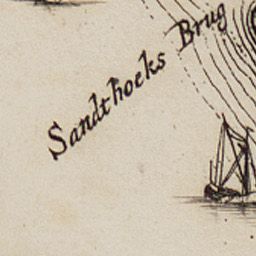 Sandthoeks Brug